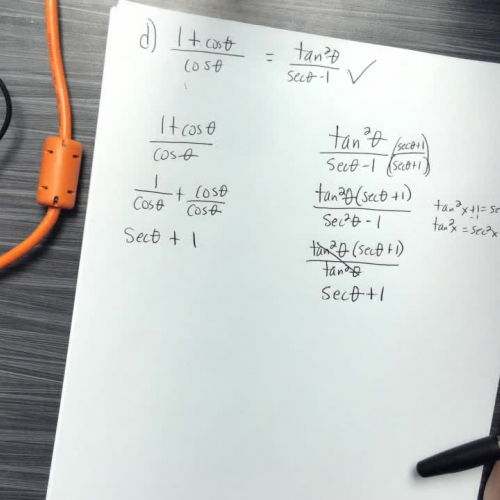 d) (1 + cosθ)/cosθ = tan²θ/(secθ - 1) ✓
(1 + cosθ)/cosθ
1/cosθ + cosθ/cosθ
secθ + 1
tan²θ/(secθ - 1) (secθ+1)/(secθ+1)
tan²θ(secθ + 1)/(sec²θ - 1)
tan²θ(secθ + 1)/tan²θ
secθ + 1
tan²x + 1 = se
-1
tan²x = sec²x